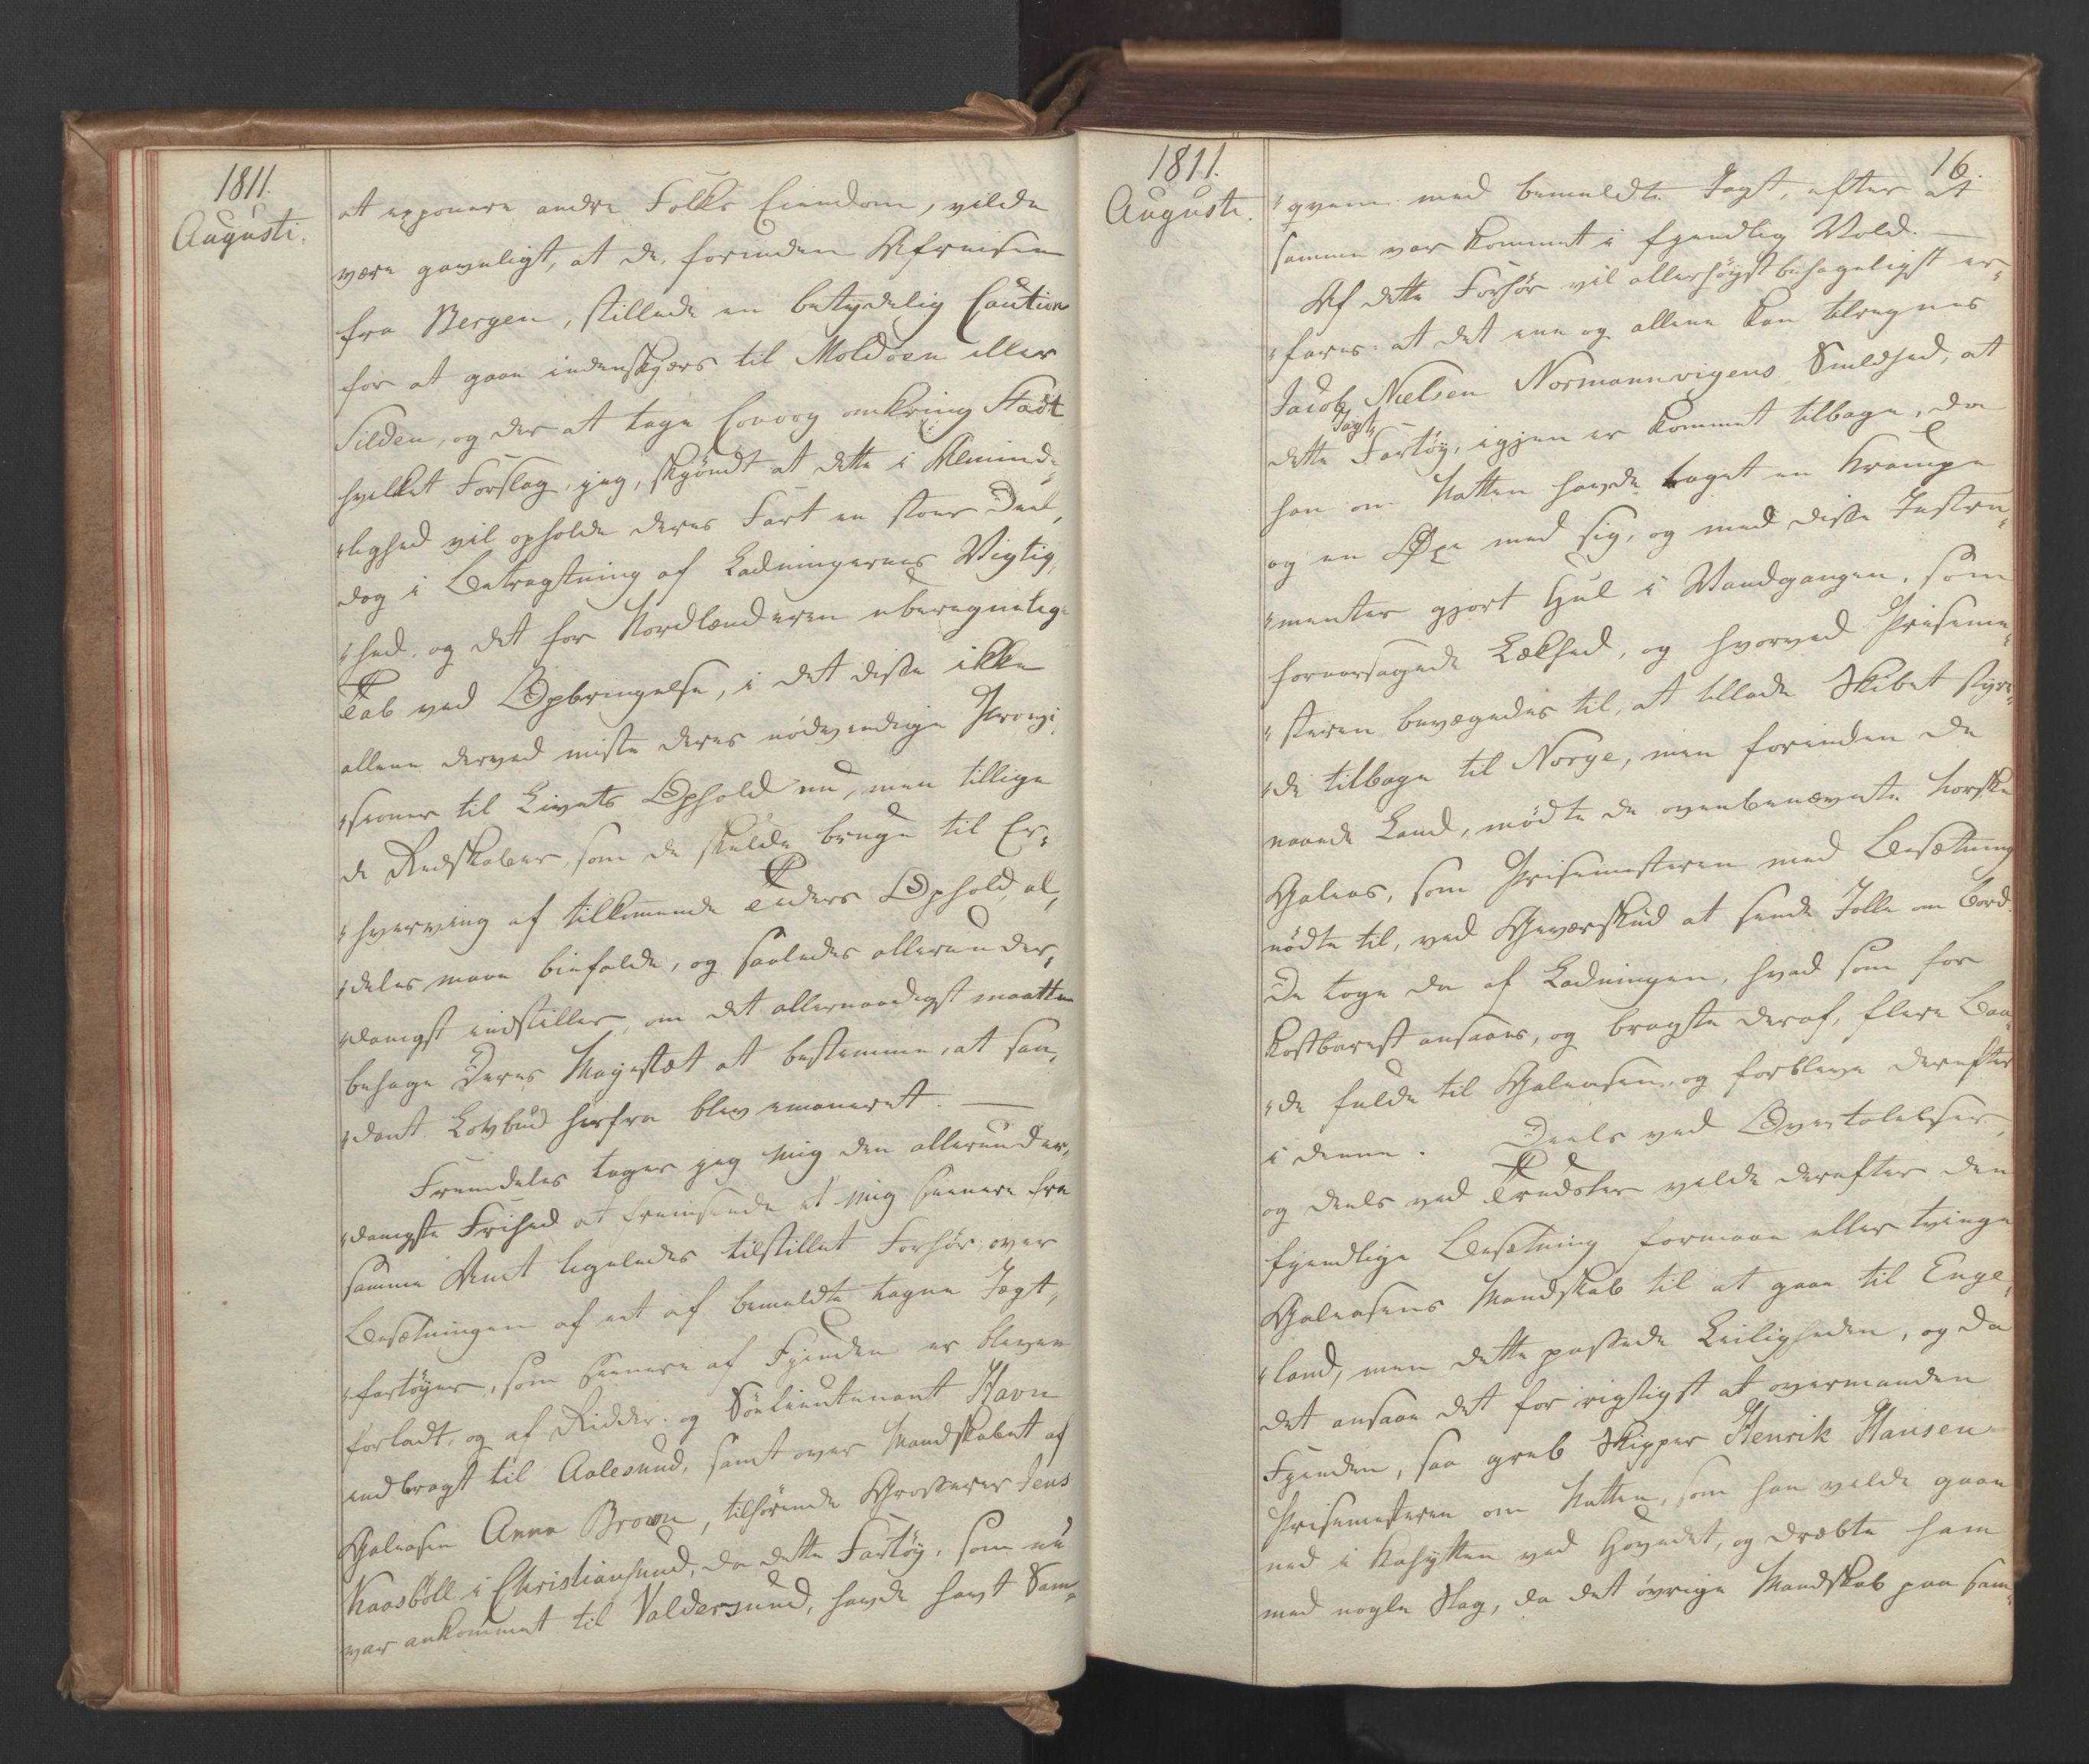 1811.
Augusti.
at exponere andre Folks Eiendom, vilde
være gavnligt, at de, forinden Afreisen
fra Bergen, stillede en betydelig Caution
for at gaae indenskjærs til Moldöen eller
Silden, og der at tage Convoy omkring Stadt
hvilket Forslag, jeg, skjöndt at dette i Almind-
lighed vil opholde deres Fart en stor Deel,
dog i Betragtning af Ladningernes Vigtig-
hed, og det for Nordlænderen uberegnelige
Tab ved Opbringelse, i det disse ikke
allene derved miste deres nödvendige Provi-
sioner til Livets Ophold nu, men tillige
de Redskaber, som de skulde bruge til Er-
hverving af tilkommende Tiders Ophold, al-
deles maae biefalde, og saaledes allerunder-
danigst indstiller, om det allernaadigst maatte
behage Deres Majestæt at bestemme, at saa-
dant Lovbud herfra blev emaneret. —
Fremdeles tager jeg mig den allerunder-
danigste Frihed at fremsende et mig senere fra
samme Amt ligeledes tilstillet Forhör over
Besætningen af eet af bemeldte tagne Jagt-
fartöyer, som senere af Fjenden er bleven
forladt, og af Ridder og Söelieutenant Havn
indbragt til Aalesund, samt over Mandskabet af
Galeasen Anna Brown, tilhörende Grosserer Jens
Kaasböll i Christiansund, da dette Fartöy, som nu
var ankommet til Valdersund, havde havt Sam-
1811.
Augusti.
16.
qvem med bemeldte Jagt, efter at
samme var kommet i fjendtlig Vold. —
Af dette Forhör vil allerhöyst behageligst er-
fares: at det ene og allene kan tilregnes
Jacob Nielsen Normannvigens Snildhed, at
dette Jagt Fartöy, igjen er kommet tilbage, da
han om Natten havde taget en Krampe
og en Öxe med sig, og med disse Instru-
menter gjort Hul i Vandgangen, som
foraarsagede Lækhed, og hvorved Priseme-
steren bevægedes til, at tillade Skibet styre-
de tilbage til Norge, men forinden de
naaede Land, mödte de ovenbenævnte norske
Galeas, som Prisemesteren med Besætning
nödte til, ved Geværskud at sende Jolle om Bord.
De toge da af Ladningen, hvad som for
kostbarest ansaaes, og bragte deraf, flere Baa-
de fulde til Galeasen, og forbleve derefter
i denne. Deels ved Overtalelser,
og deels ved Trudsler vilde derefter den
fjendtlige Besætning formaae eller tvinge
Galeasens Mandskab til at gaae til Enge-
land, men dette passede Leiligheden, og da
det ansaae det for rigtigst at overmande
Fjenden, saa greb Skipper Henrik Hansen
Prisemesteren om Natten, som han vilde gaae
ned i Kahytten ved Hovedet, og dræbte ham
med nogle Slag, da det övrige Mandskab paa sam-